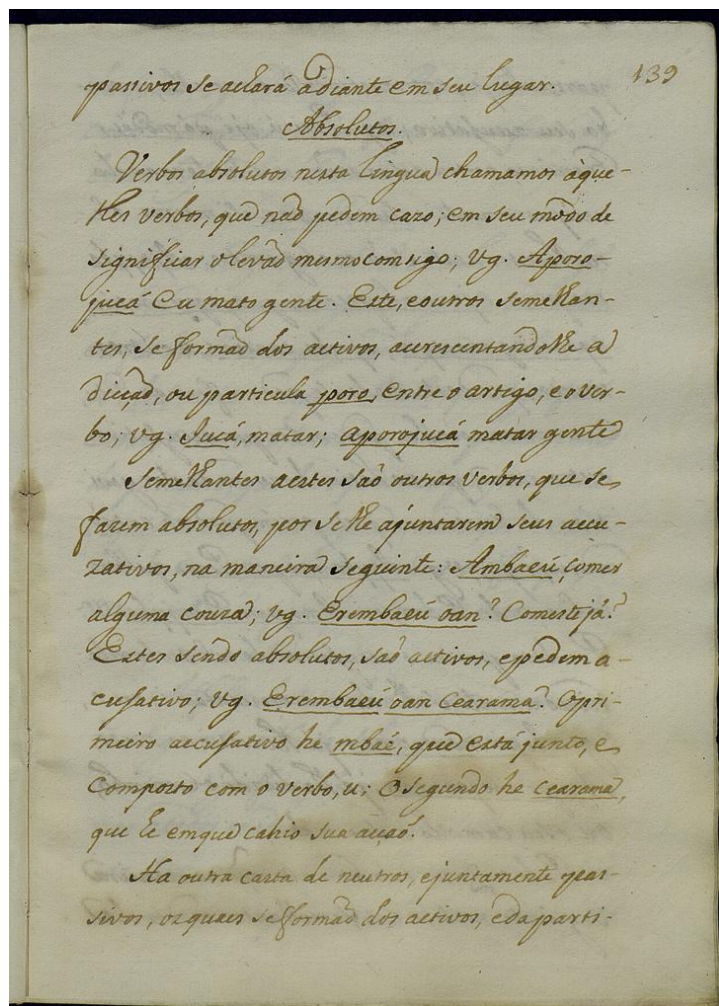 139
passivos se achará adiante em seu lugar.
Absolutos.
Verbos absolutos nesta Lingua chamamos àque-
lles verbos, que naõ pedem cazo; em seu modo de
significar o levaõ mesmo comsigo; vg. Aporo-
jucá Eu mato gente. Este, e outros semelhan-
tes, se formaõ dos activos, acrescentandolhe a
dicçaõ, ou particula poro, entre o artigo, e o ver-
bo; vg. Jucá, matar; aporojucá matar gente
Semelhantes aestes saõ outros verbos, que se
fazem absolutos, por se lhe ajuntarem seus accu-
zativos, na maneira seguinte: Ambaeú, comer
alguma couza; vg. Erembaeú oan? Comeste já?
Estes sendo absolutos, saõ activos, epedem a-
cusativo; vg. Erembaeú oan Cearama? O pri-
meiro accusativo he mbaé, que está junto, e
composto com o verbo, u; O segundo he cearama,
que he em que cahio sua acçaõ.
Ha outra casta de neutros, ejuntamente pas-
sivos, os quaes se formaõ dos activos, eda parti-